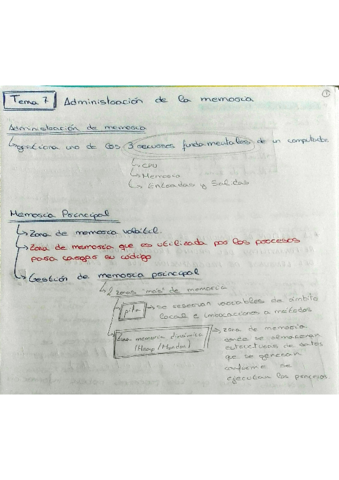 ①
Tema 7 Administración de la memoria
Administración de memoria
gestiona uno de los 3 recursos fundamentales de un computador
CPU
Memoria
Entradas y Salidas
Memoria Principal
Zona de memoria volátil.
Zona de memoria que es utilizada por los procesos
para cargar su código
Gestión de memoria principal
2 zonas "más" de memoria
pila se reservan variables de ámbito
local e invocaciones a métodos
Zona memoria dinámica
(Heap / Montón)
zona de memoria
donde se almacenan
estructuras de datos
que se generan
conforme se
ejecutan los procesos